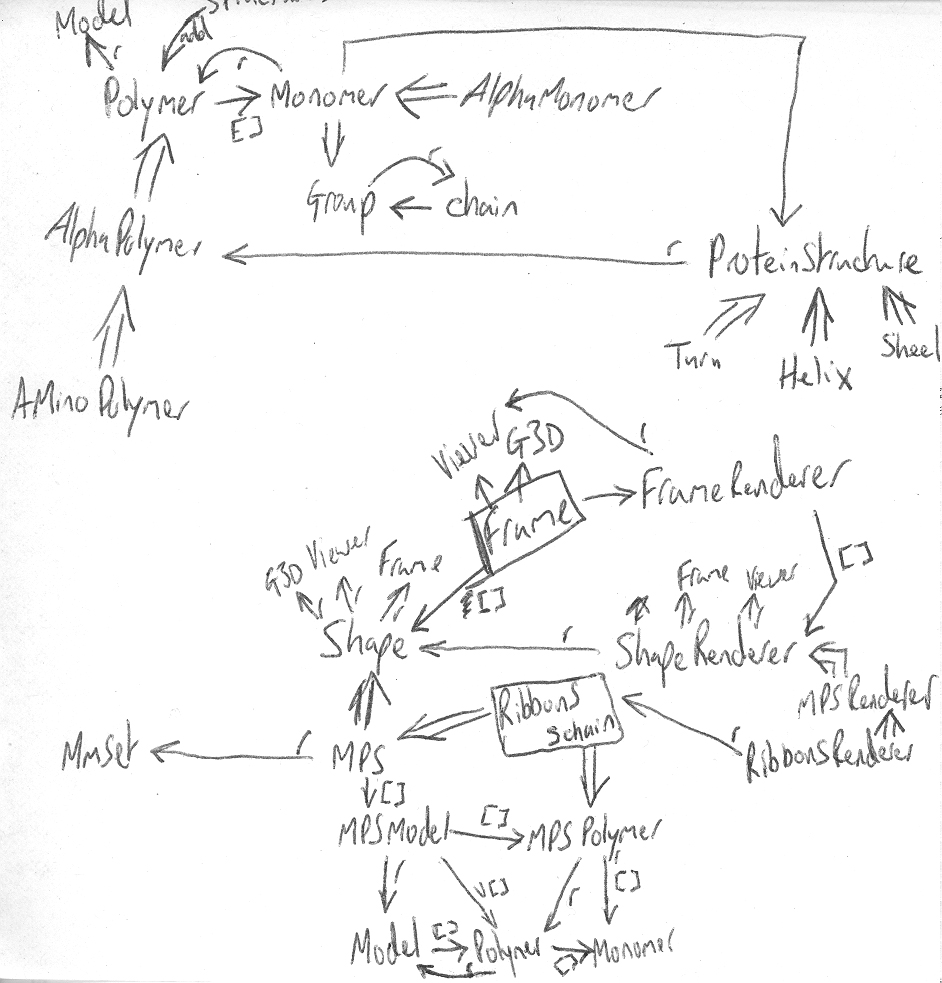 Model
add
r
Polymer
r
Monomer
AlphaMonomer
[]
Group
r
chain
AlphaPolymer
r
ProteinStructure
Turn
Helix
Sheet
AMinoPolymer
Viewer
G3D
r
Frame
FrameRenderer
[]
G3D Viewer
Frame
[]
Frame
Viewer
Shape
r
ShapeRenderer
MPSRenderer
Ribbons
schain
MmSet
r
MPS
r
RibbonsRenderer
[]
MPSModel
[]
MPSPolymer
r
v[]
r
[]
Model
[]
Polymer
[]
Monomer
r